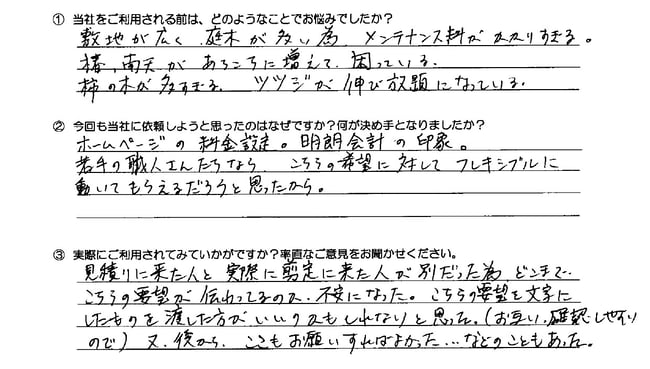 ① 当社をご利用される前は、どのようなことでお悩みでしたか?
敷地が広く、庭木が多い為、メンテナンス料がかかりすぎる。
椿、南天があちこちに増えて、困っている。
柿の木が多すぎる。 ツツジが伸び放題になっている。
② 今回も当社に依頼しようと思ったのはなぜですか?何が決め手となりましたか?
ホームページの料金設定。明朗会計の印象。
若手の職人さんたちなら、こちらの希望に対してフレキシブルに
動いてもらえるだろうと思ったから。
③ 実際にご利用されてみていかがですか?率直なご意見をお聞かせください。
見積りに来た人と実際に剪定に来た人が別だった為、どこまで
こちらの要望が伝わってるのか、不安になった。こちらの要望を文字に
したものを渡した方がいいのかもしれないと思った。(お互い、確認しやすい
ので) 又、後から、ここもお願いすればよかった…などのこともあった。